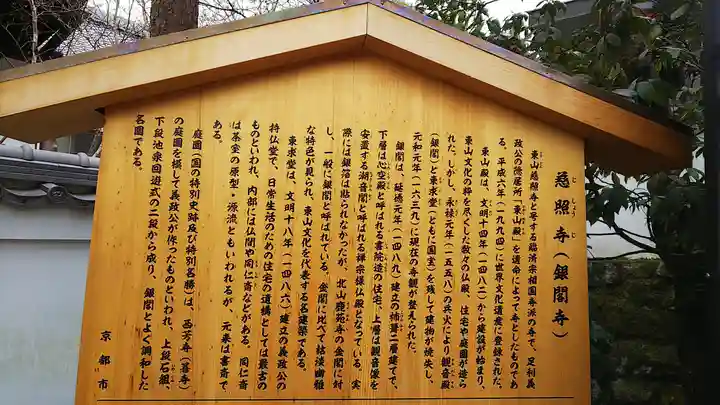 慈照寺（銀閣寺）
じしょうじ
東山慈照寺と号する臨済宗相国寺派の寺で、足利義
政公の隠居所「東山殿」を遺命によって寺としたものであ
る。平成六年（一九九四）に世界文化遺産に登録された。
東山殿は、文明十四年（一四八二）から建設が始まり、
東山文化の粋を尽くした数々の仏殿、住宅や庭園が造ら
れた。しかし、永禄元年（一五五八）の兵火により観音殿
（銀閣）と東求堂（ともに国宝）を残して建物が焼失し、
元和元年（一六三九）に現在の寺観が整えられた。
銀閣は、延徳元年（一四八九）建立の杮葺二層建てで、
下層は心空殿と呼ばれる書院造の住宅、上層は観音像を
安置する潮音閣と呼ばれる禅宗様仏殿となっている。実
際には銀箔は貼られなかったが、北山鹿苑寺の金閣に対
し、一般に銀閣と呼ばれている。金閣に比べて枯淡幽雅
な特色が見られ、東山文化を代表する名建築である。
東求堂は、文明十八年（一四八六）建立の義政公の
持仏堂で、日常生活のための住宅の遺構としては最古の
ものといわれ、内部には仏間や同仁斎などがある。同仁斎
は茶室の原型・源流ともいわれるが、元来は書斎で
ある。
庭園（国の特別史跡及び特別名勝）は、西芳寺（苔寺）
の庭園を模して義政公が作ったものといわれ、上段石組、
下段池泉回遊式の二段から成り、銀閣とよく調和した
名園である。
京都市